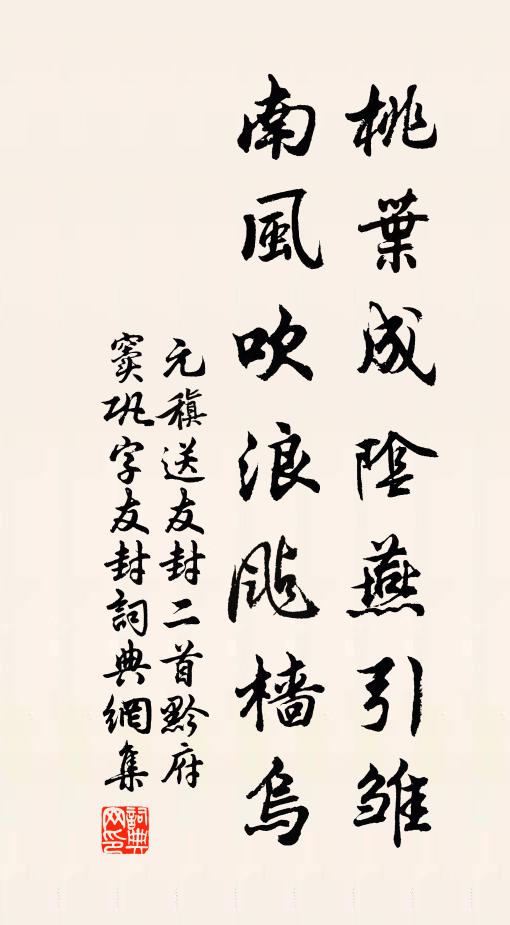 桃葉成陰燕引雛
南風吹浪颭檣烏
元稹送友封二首黔府
窦巩字友封詞典網集
詞典網印